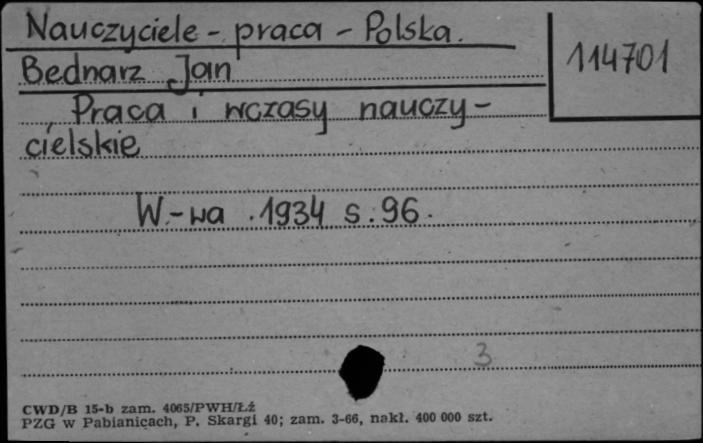 Nauczyciele - praca - Polska.
114701
Bednarz Jan
Praca i wczasy nauczy-
cielskie
W.-wa . 1934 s. 96.
3
CWD/B 15-b zam. 4065/PWH/Łź
PZG w Pabianicach, P. Skargi 40; zam. 3-66, nakł. 400 000 szt.